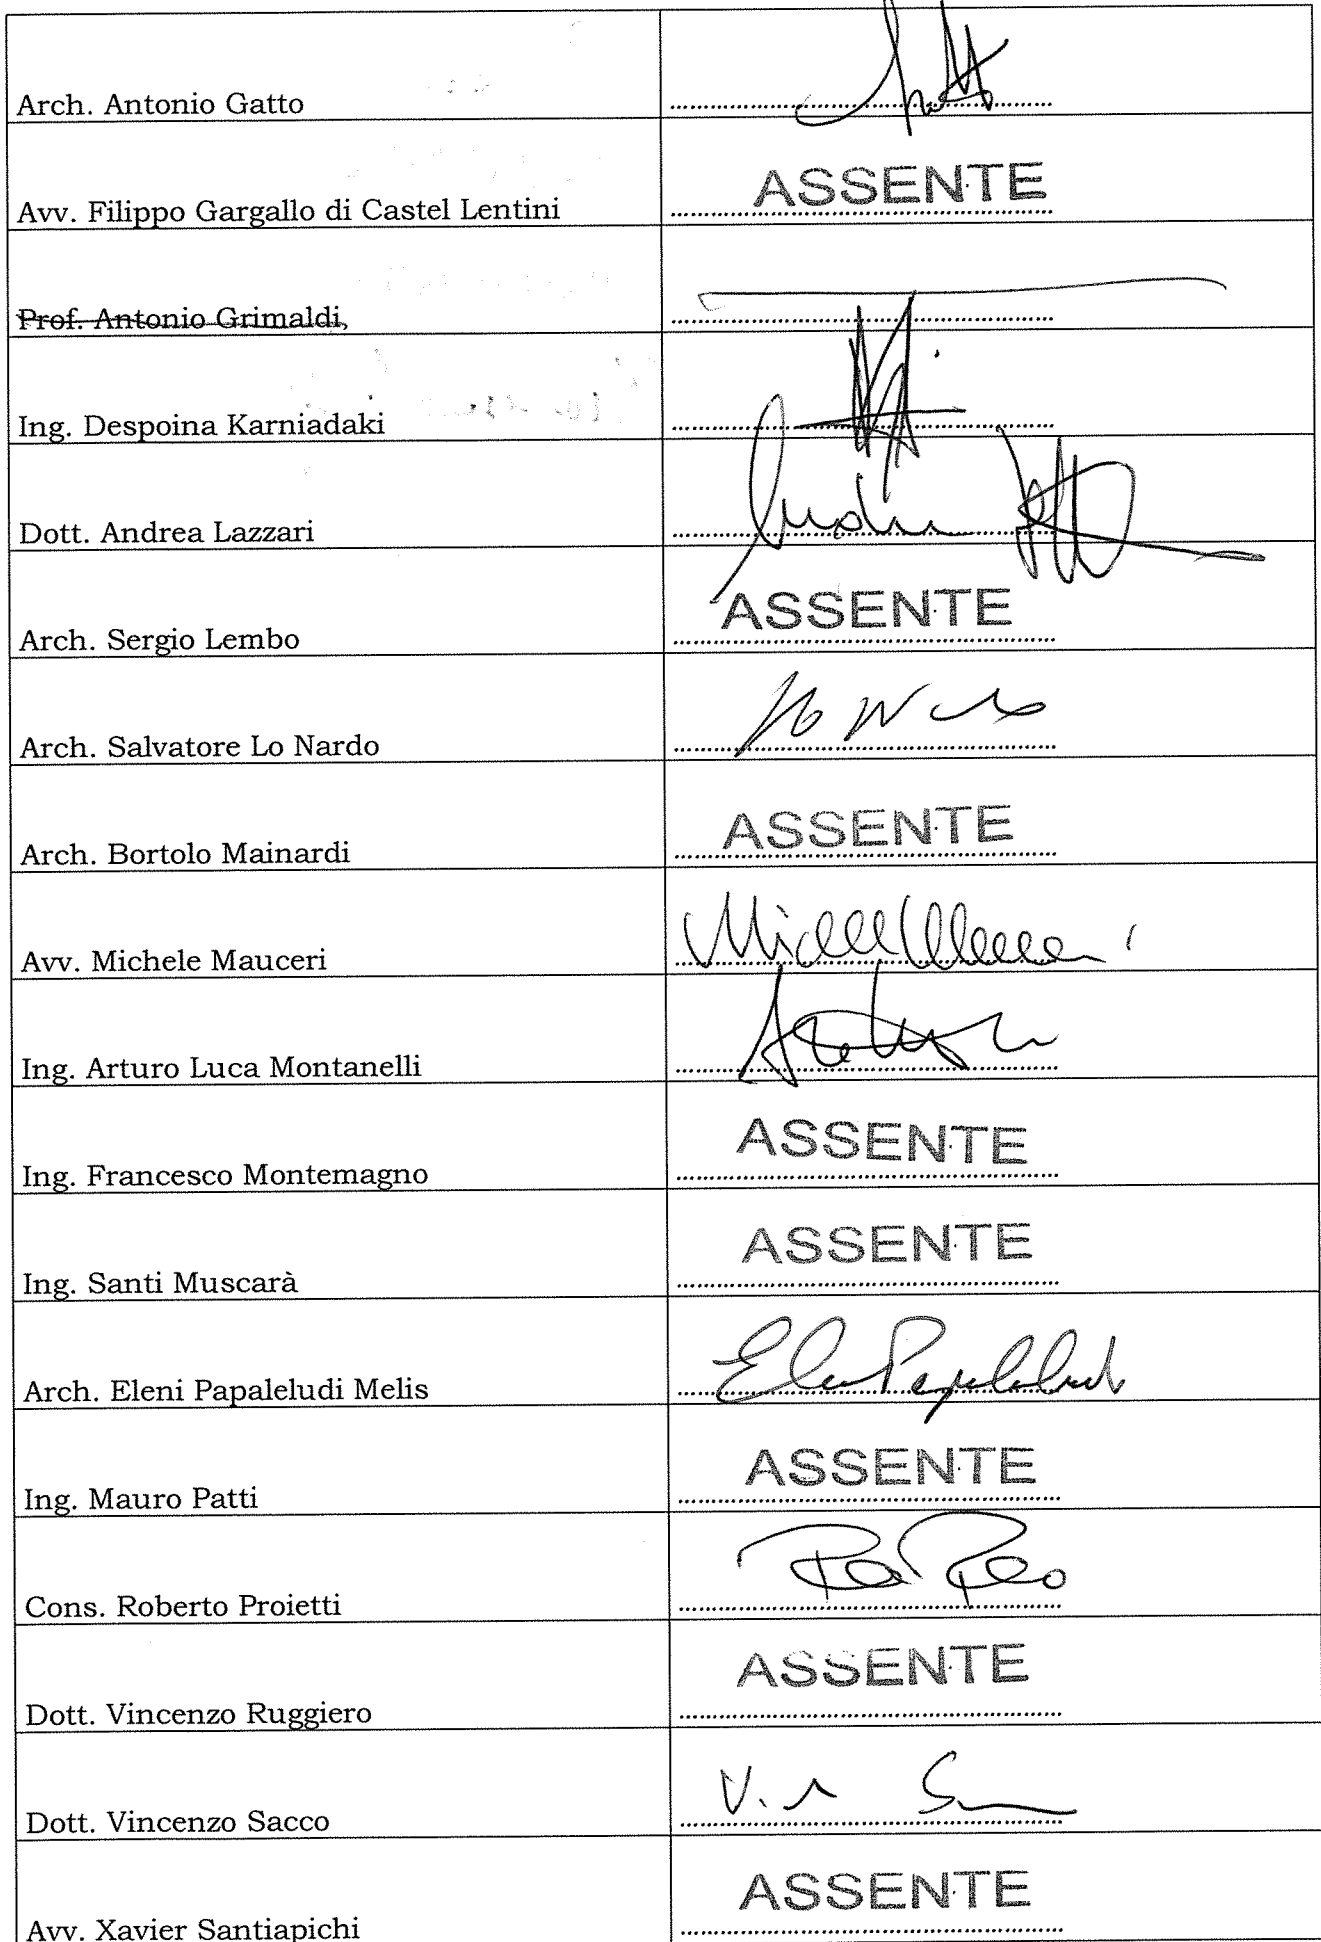 Arch. Antonio Gatto
Avv. Filippo Gargallo di Castel Lentini ASSENTE
Prof. Antonio Grimaldi,
Ing. Despoina Karniadaki
Dott. Andrea Lazzari
Arch. Sergio Lembo ASSENTE
Arch. Salvatore Lo Nardo
Arch. Bortolo Mainardi ASSENTE
Avv. Michele Mauceri
Ing. Arturo Luca Montanelli
Ing. Francesco Montemagno ASSENTE
Ing. Santi Muscarà ASSENTE
Arch. Eleni Papaleludi Melis
Ing. Mauro Patti ASSENTE
Cons. Roberto Proietti
Dott. Vincenzo Ruggiero ASSENTE
Dott. Vincenzo Sacco
Avv. Xavier Santiapichi ASSENTE